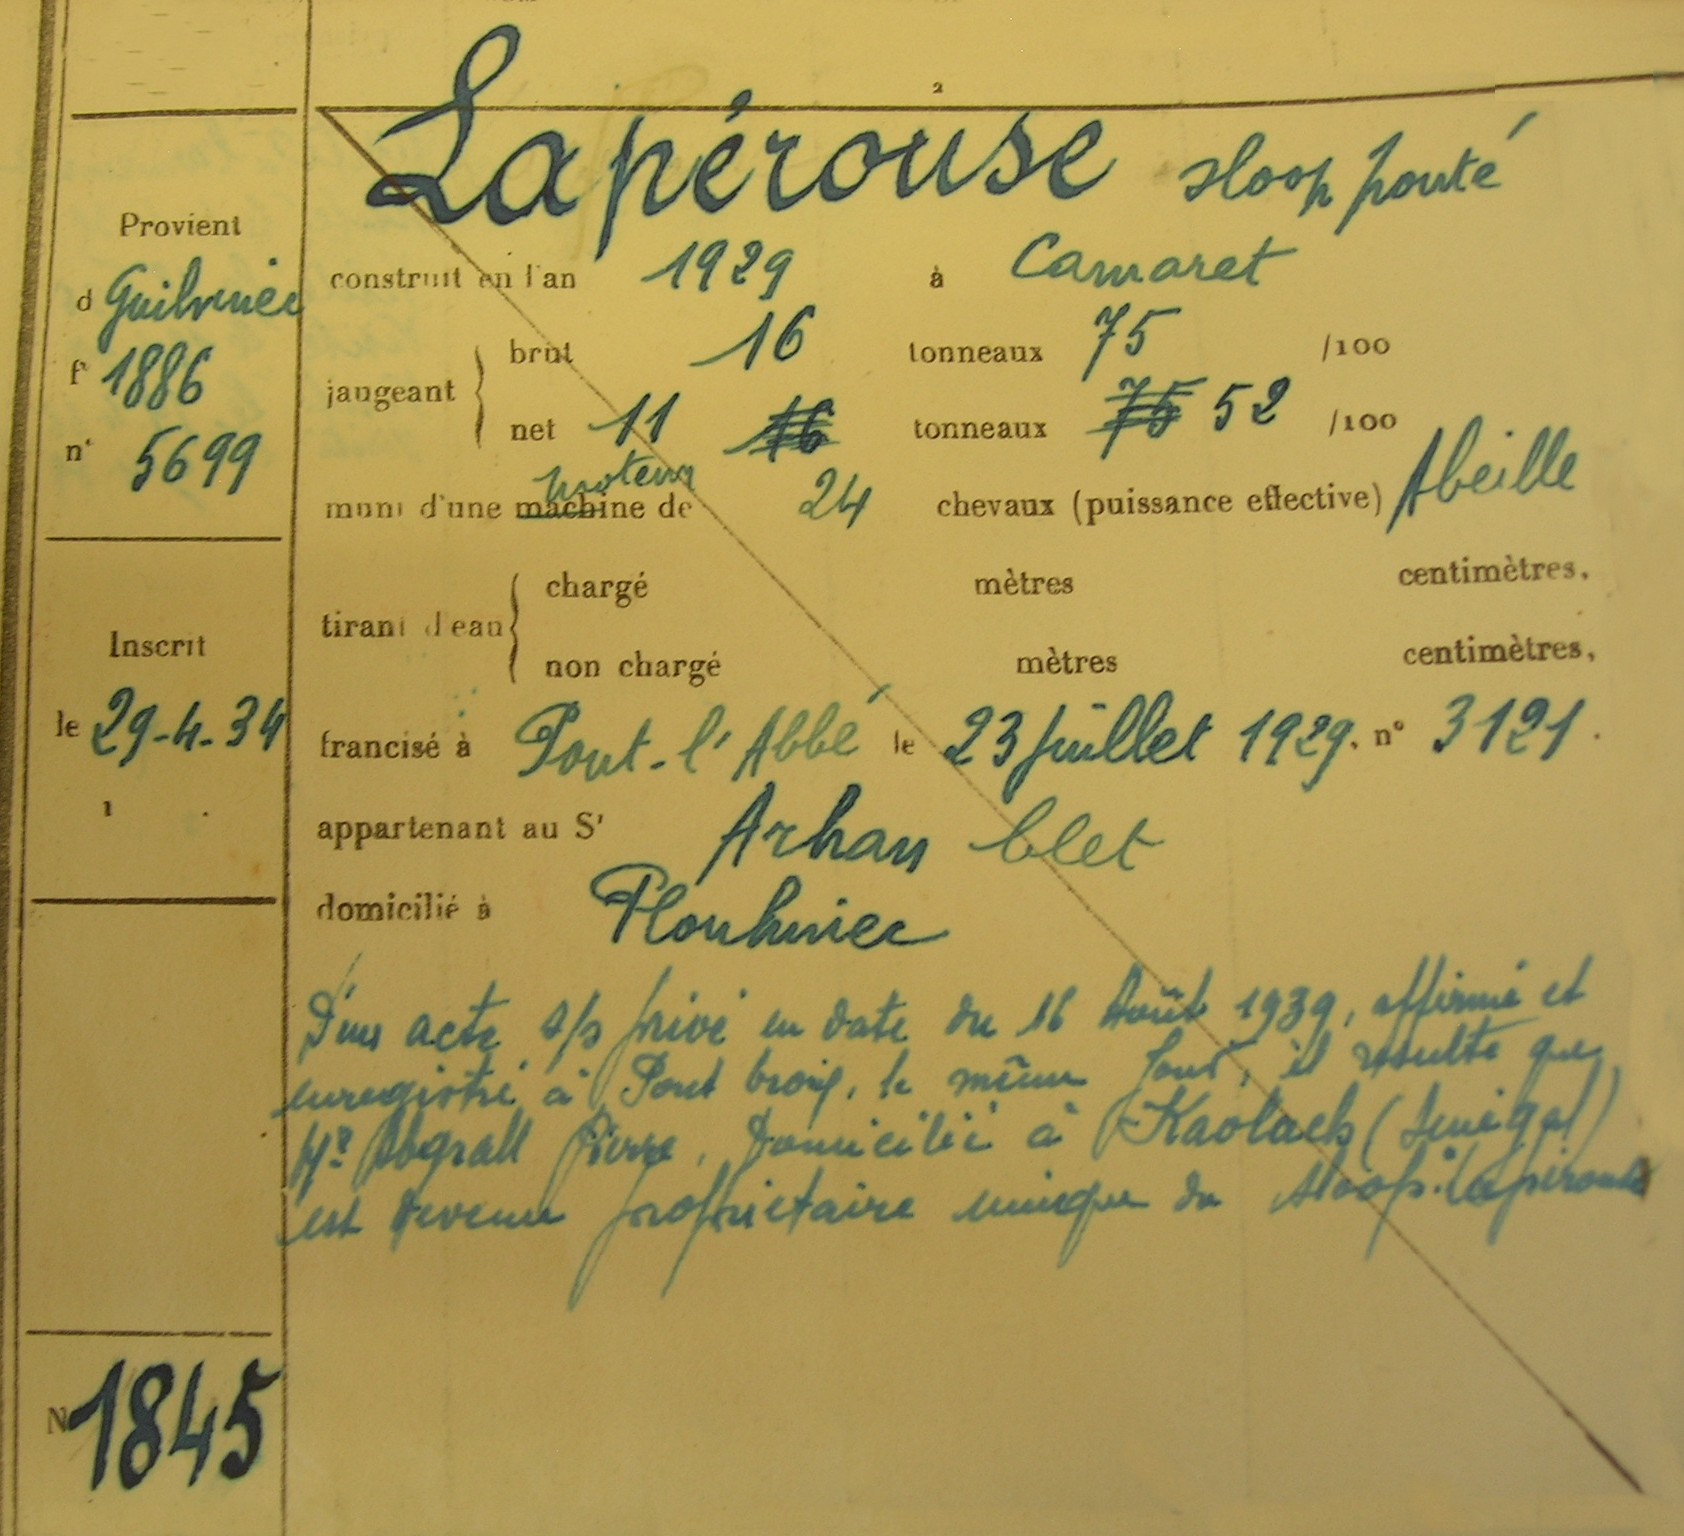 2
Lapérouse sloop ponté
Provient
d Guilvinec
f° 1886
n° 5699
construit en l'an 1929 à Camaret
jaugeant { brut 16 tonneaux 75 /100
net 11 16 tonneaux 75 52 /100
moteur
muni d'une machine de 24 chevaux (puissance effective) Abeille
tirant d'eau { chargé mètres centimètres,
non chargé mètres centimètres,
Inscrit
le 29-4-34
francisé à Pont-l'Abbé le 23 Juillet 1929. n° 3121.
appartenant au Sr Arhan Clet
domicilié à Plouhinec
D'un acte s/s privé en date du 16 Août 1939, affirmé et
enregistré à Pont Croix, le même jour, il résulte que
Mr Abgrall Pierre, domicilié à Kaolack (Sénégal)
est devenu propriétaire unique du sloop "Lapérouse
N 1845